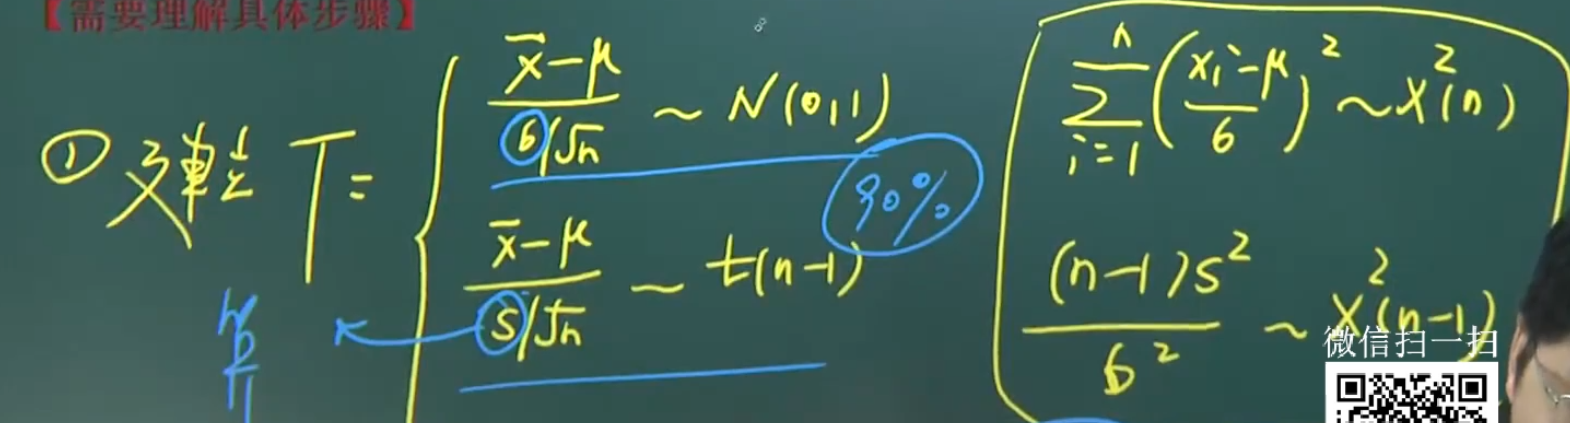 【需要理解具体步骤】
① 选择 T =
x̄-μ / σ/√n ~ N(0,1)
90%
x̄-μ / S/√n ~ t(n-1)
算
n Σ i=1 (xi-μ / σ)² ~ χ²(n)
(n-1)S² / σ² ~ χ²(n-1)
微信扫一扫